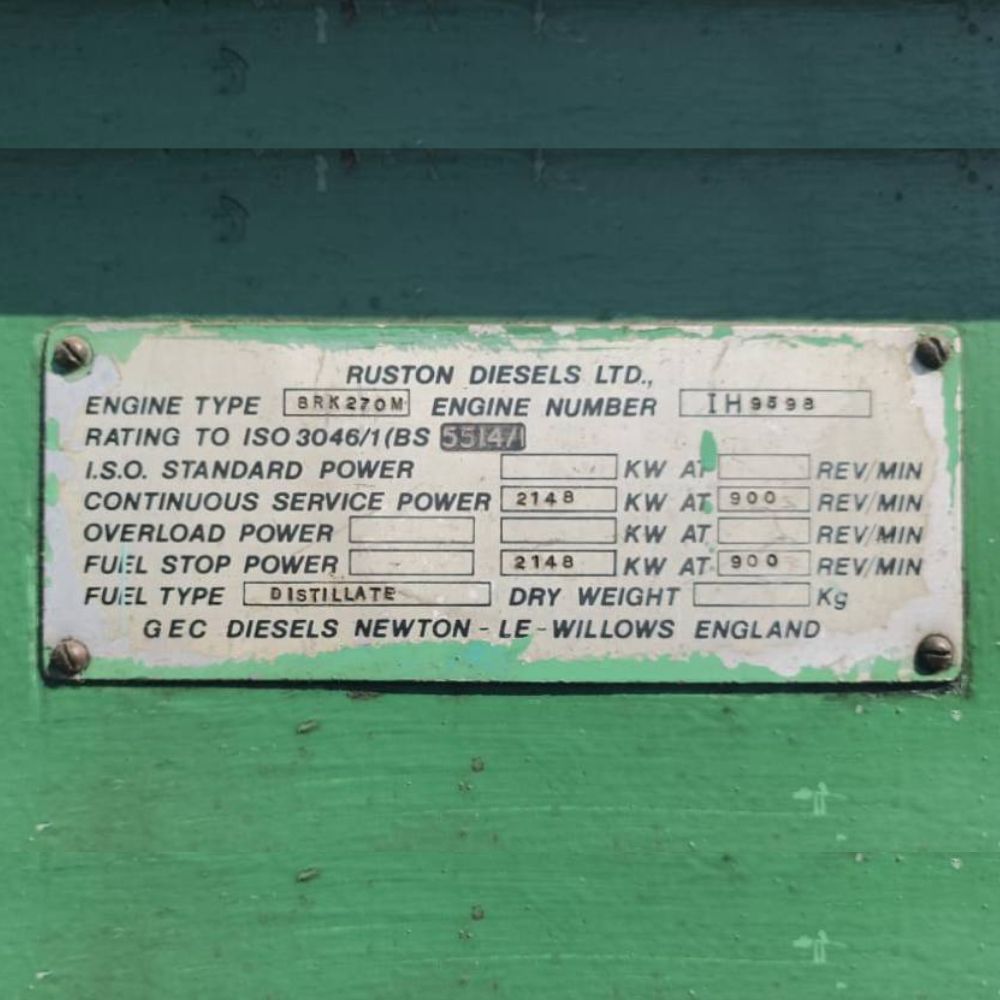 RUSTON DIESELS LTD.,
ENGINE TYPE 8RK270M ENGINE NUMBER IH9598
RATING TO ISO 3046/1 (BS 5514/1
I.S.O. STANDARD POWER KW AT REV/MIN
CONTINUOUS SERVICE POWER 2148 KW AT 900 REV/MIN
OVERLOAD POWER KW AT REV/MIN
FUEL STOP POWER 2148 KW AT 900 REV/MIN
FUEL TYPE DISTILLATE DRY WEIGHT Kg
GEC DIESELS NEWTON - LE - WILLOWS ENGLAND